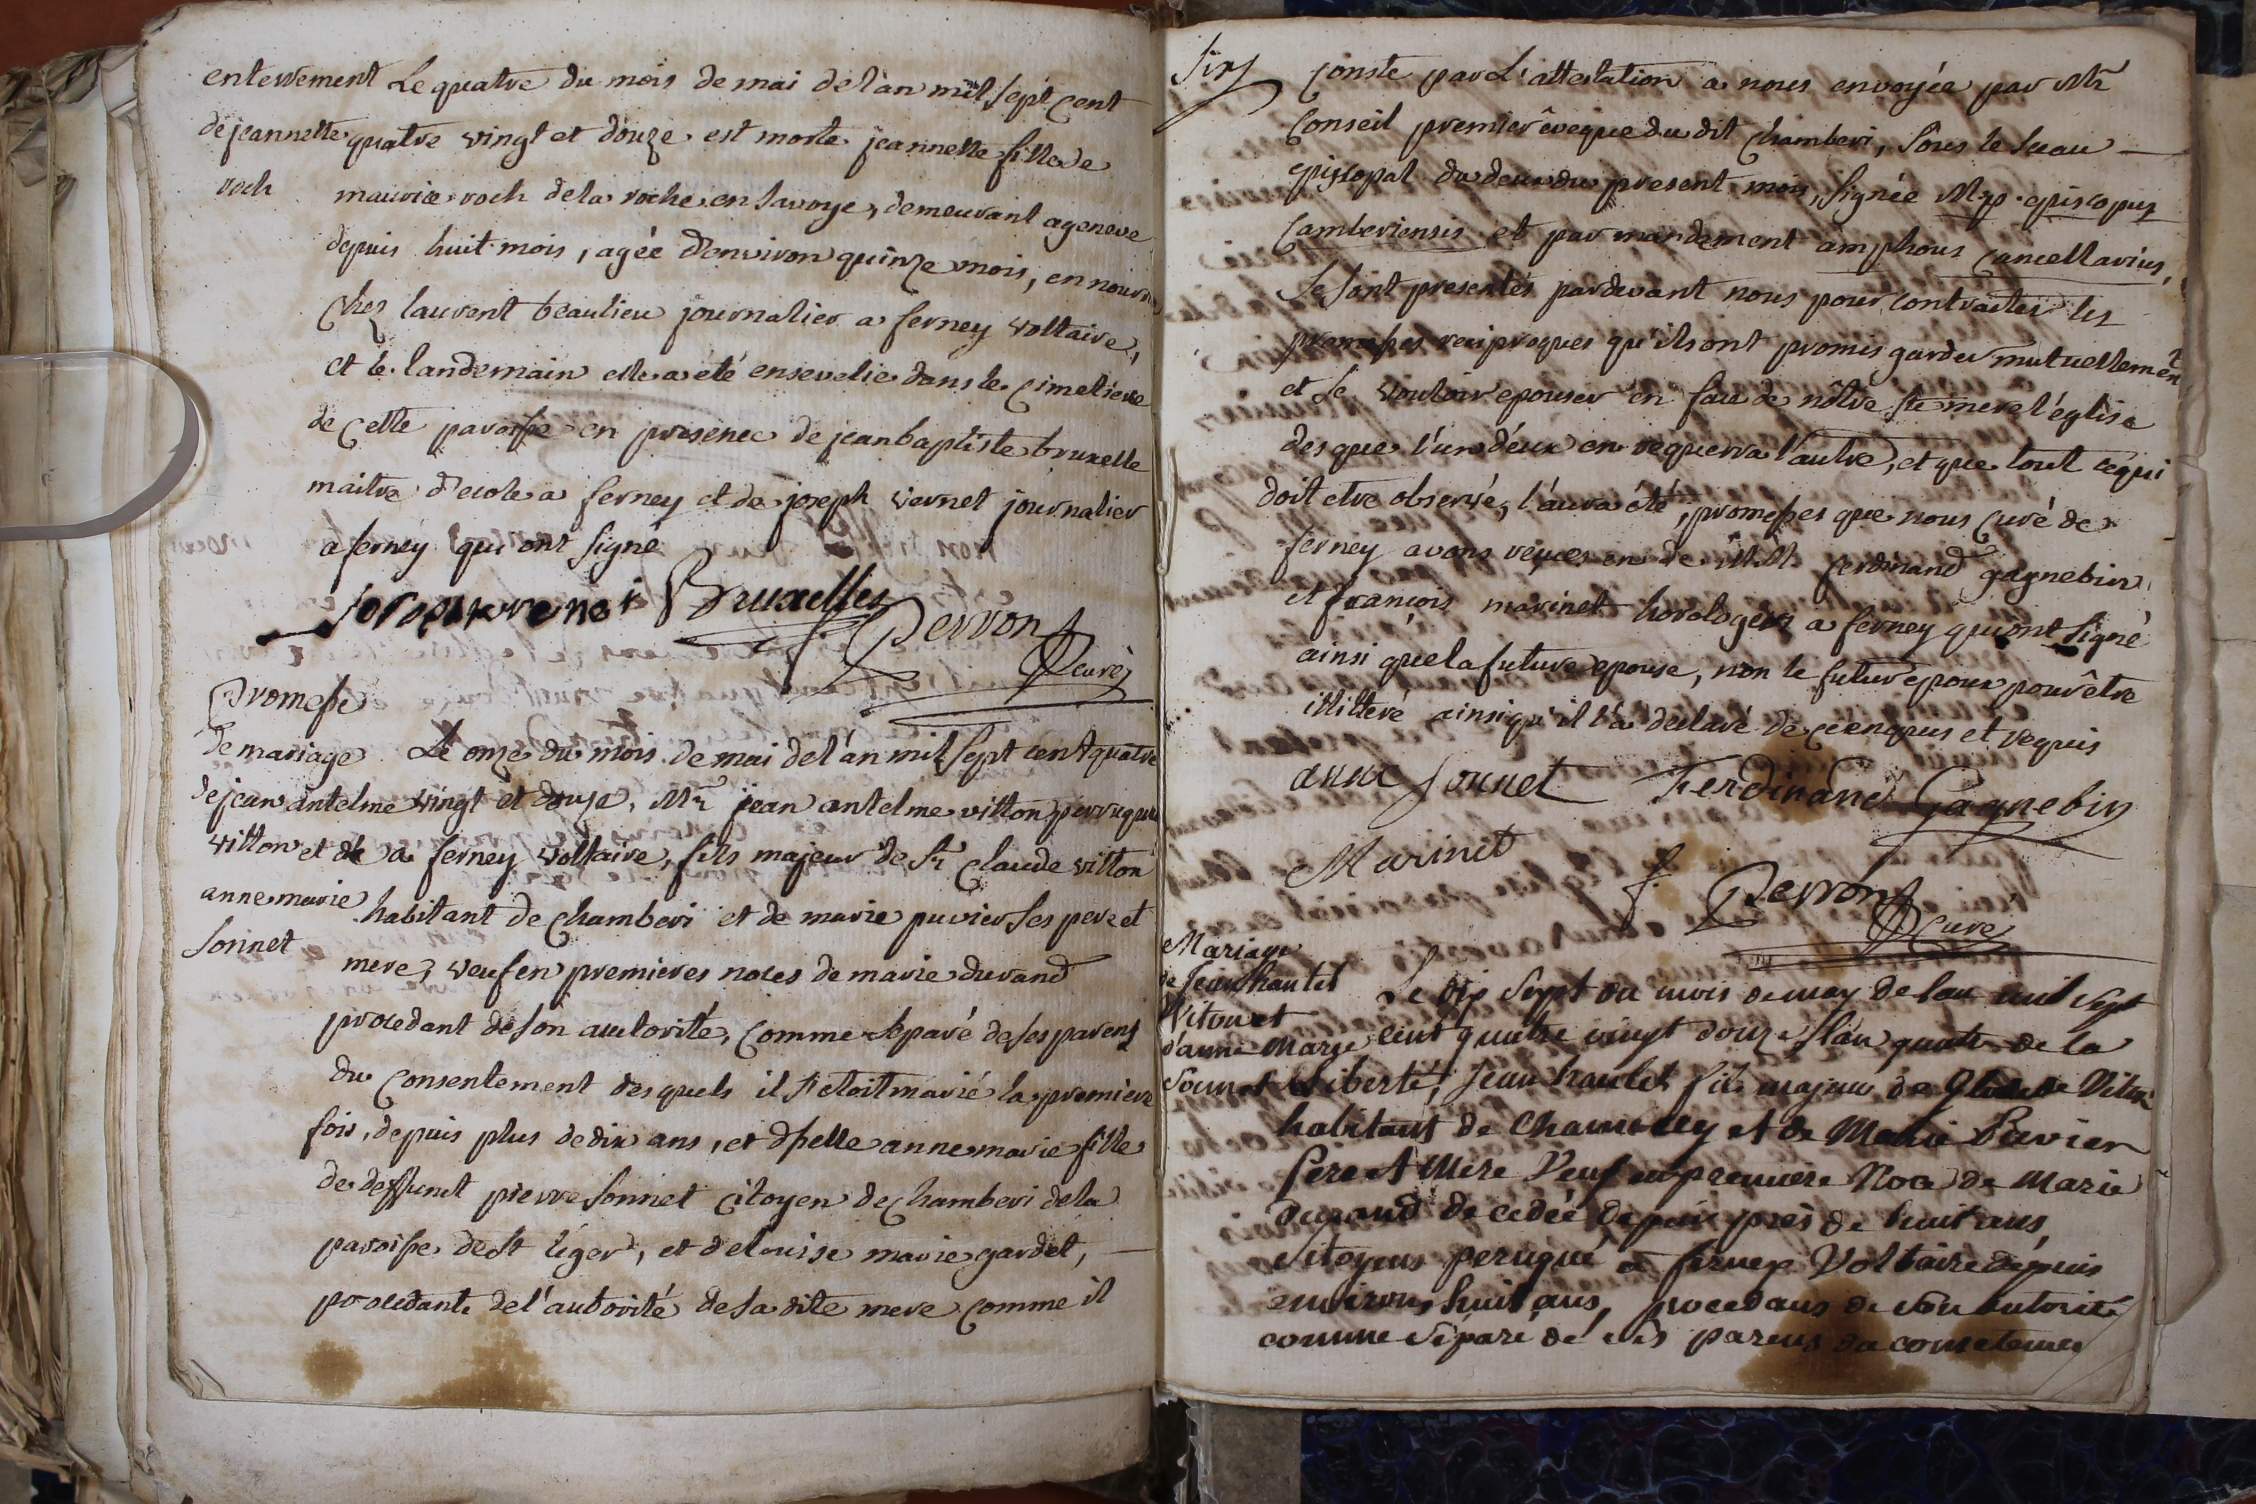 enterrement Le quatre du mois de mai de l'an mil sept cent
de jeannette quatre vingt et douze est morte jeannette fille de
roch maurice roch de la roche en savoye, demeurant a geneve
depuis huit mois, agée d'environ quinze mois, en nourri
chez laurent beaulieu journalier a ferney voltaire,
et le landemain elle a été ensevelie dans le cimetiere
de cette paroisse en presence de jean baptiste bruxelle
maitre d'ecole a ferney et de joseph vernet journalier
a ferney qui ont signé
Bruxelles
Perron
Curé
Promesse
de mariage Le onze du mois de mai de l'an mil sept cent quatre
de jean antelme vingt et douze, Mr jean antelme vitton perruquier
vitton et de a ferney voltaire, fils majeur de Sr claude vitton
anne marie habitant de chamberi et de marie puvier ses pere et
sonnet
mere, veuf en premieres noces de marie durand
procedant de son autorité, comme separé de ses parens
du consentement desquels il s'etoit marié la premiere
fois, depuis plus de dix ans, et dselle anne marie fille
de deffunct pierre sonnet citoyen de chamberi de la
paroisse de St léger, et de louise marie gardet,
procedante de l'autorité de sa dite mere comme il
conste par l'attestation a nous envoyée par Mr
Conseil premier évêque du dit chamberi, sous le sceau
episcopal du deux du present mois, signée Mp. episcopus
Camberiensis et par mandement amphoux cancellarius,
se sont presentés pardevant nous pour contracter les
promesses reciproques qu'ils ont promis garder mutuellement
et se vouloir epouser en face de nôtre ste mere l'église
des que l'un d'eux en requerra l'autre, et que tout ce qui
doit etre observé, l'aura été, promesses que nous Curé de
ferney avons reçues en de MM. ferdinand gagnebin
et françois marinet horologers a ferney qui ont signé
ainsi que la future epouse, non le futur epoux pour être
illitteré ainsi qu'il l'a declaré de ce enquis et requis
anne sonnet Ferdinand Gagnebin
Marinet
f. Perron
Curé
Mariage
de Jean hantel Le dix sept du mois de may de lan mil sept
Viton et
d'anne Marie cent quatre vingt douze l'an quatre de la
Sonnet Liberté, Jean hantel fils majeur de Viton
habitant de Chambery et de Marie Puvier
Pere et Mere Veuf en premiere Noce de Marie
Durand decedée depuis près de huit ans,
citoyens peruqué a ferney Voltaire depuis
environs huit ans, procedans de son autorité
comme séparé de ses parens du consetemen